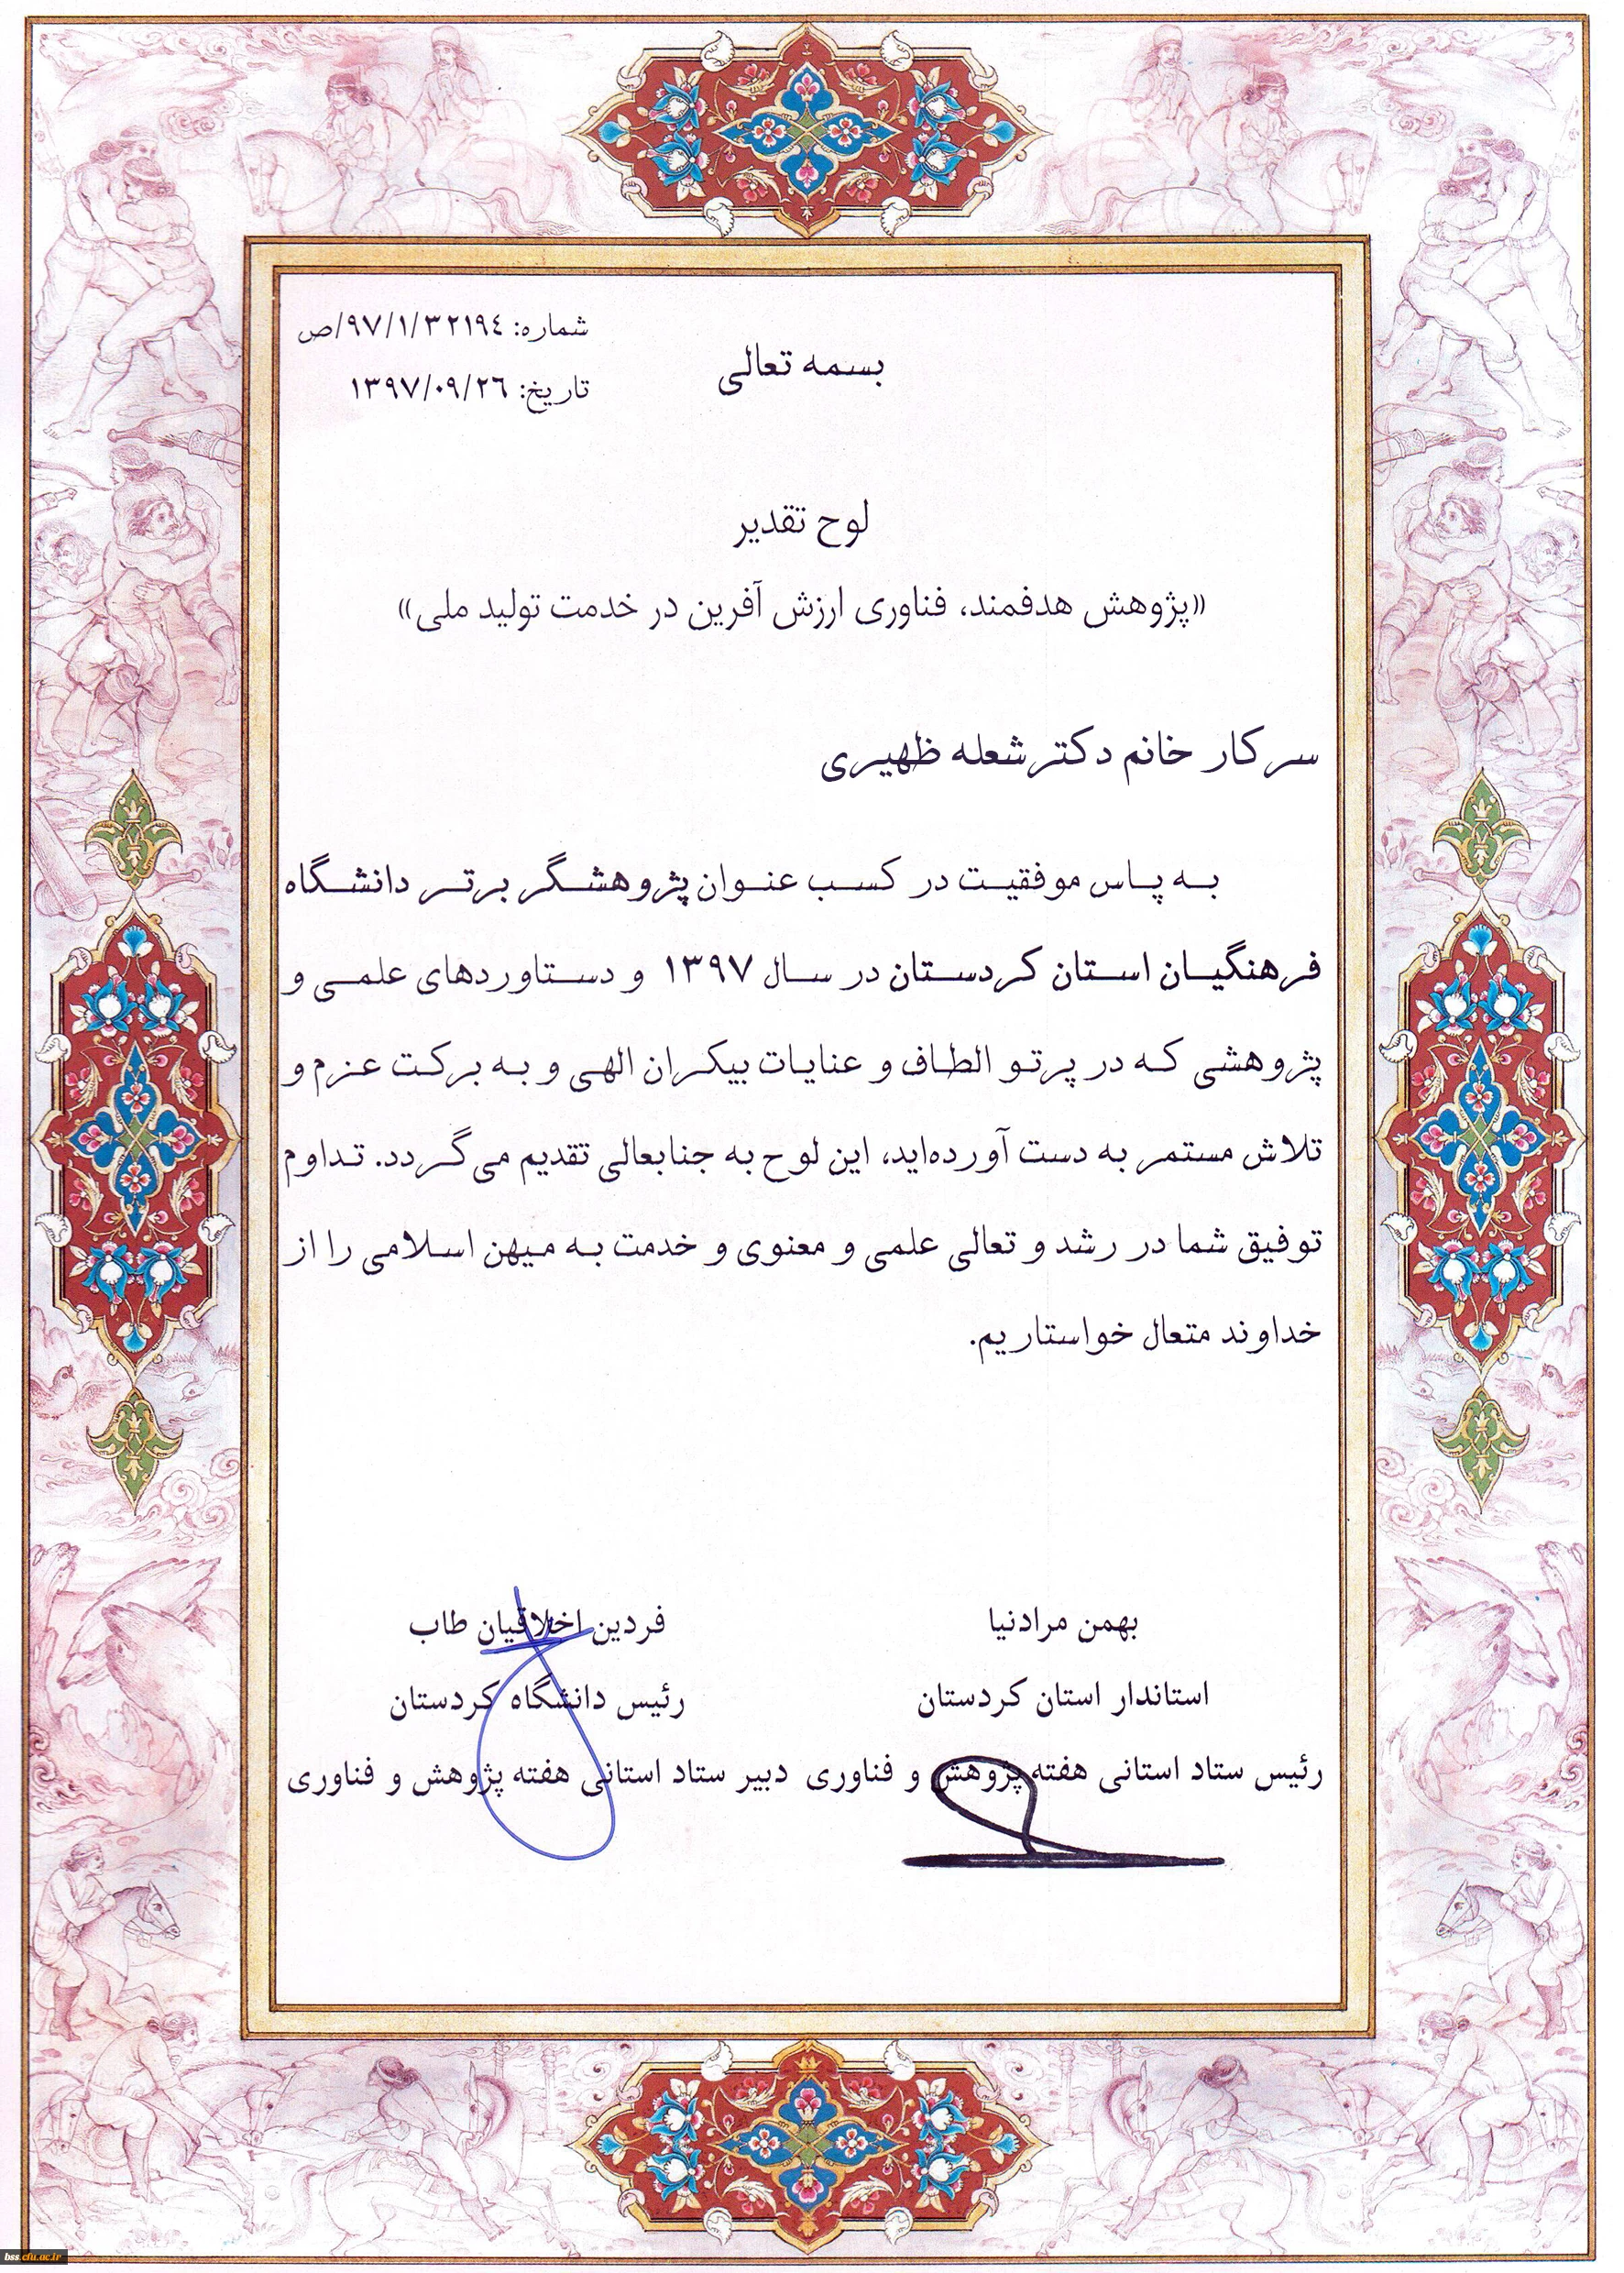 شماره: ۹۷/۱/۳۲۱۹٤/ص
بسمه تعالی
تاریخ: ۱۳۹۷/۰۹/۲٦
لوح تقدیر
«پژوهش هدفمند، فناوری ارزش آفرین در خدمت تولید ملی»
سرکار خانم دکتر شعله ظهیری
به پاس موفقیت در کسب عنوان پژوهشگر برتر دانشگاه
فرهنگیان استان کردستان در سال ۱۳۹۷ و دستاوردهای علمی و
پژوهشی که در پرتو الطاف و عنایات بیکران الهی و به برکت عزم و
تلاش مستمر به دست آورده‌اید، این لوح به جنابعالی تقدیم می‌گردد. تداوم
توفیق شما در رشد و تعالی علمی و معنوی و خدمت به میهن اسلامی را از
خداوند متعال خواستاریم.
بهمن مرادنیا
استاندار استان کردستان
رئیس ستاد استانی هفته پژوهش و فناوری
فردین اخلاقیان طاب
رئیس دانشگاه کردستان
دبیر ستاد استانی هفته پژوهش و فناوری
bss.cfu.ac.ir